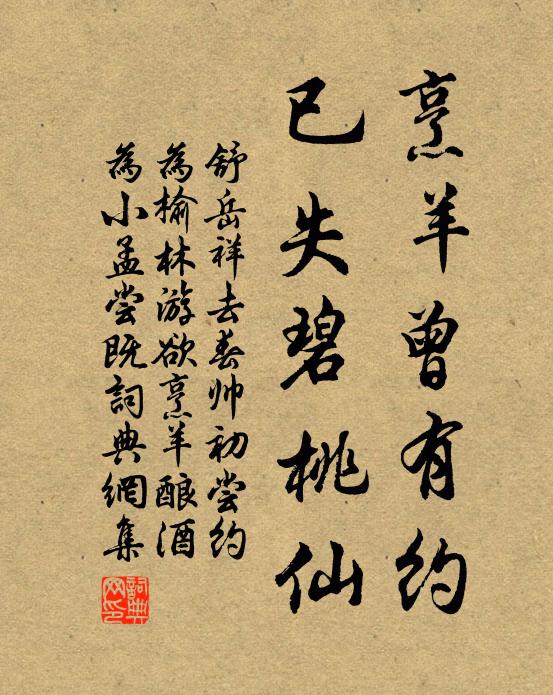 烹羊曾有约
已失碧桃仙
舒岳祥去春帅初尝约
為榆林游欲烹羊酿酒
為小孟尝既詞典網集
詞典网印